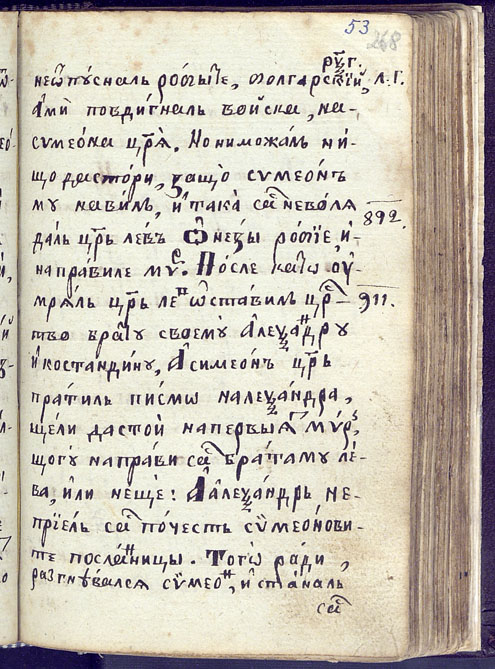 53
268
рꙋ҃г.
неѿпꙋсналь ро́бьıте, болгарскїй, л. г.
ами̏ повди́гналь войска, на-
сꙋмео́на цр҃ѧ̀. Но ниможалъ ни́-
що дастори, ꙁащо̀ сѵмеон̾ъ
мꙋ нави́лъ, и така̀ са невола
892.
далъ цр҃ь лев̾ъ ѿнеꙁы ро́бїе, и-
направиле мꙋ. После като ѹ-
мрѧ́лъ цр҃ь ле ѡставилъ цр҃-
911.
тво бра́тꙋ своемꙋ̀ Алеѯандрꙋ
и костандинꙋ, А симеон̾ъ цр҃ь
пра́тилъ писмо̀ на алеѯандра,
щели дастой на первыѧ ми́ръ,
щогꙋ направи са бра́тамꙋ ле́-
ва, или нещѐ: А алеѯандръ не-
прїе́лъ са по́честь сѷмео́нови-
те посланицы. Тогѡ̀ ра́ди,
раꙁгнѣвалсѧ сѷмео, и ста́налъ
са